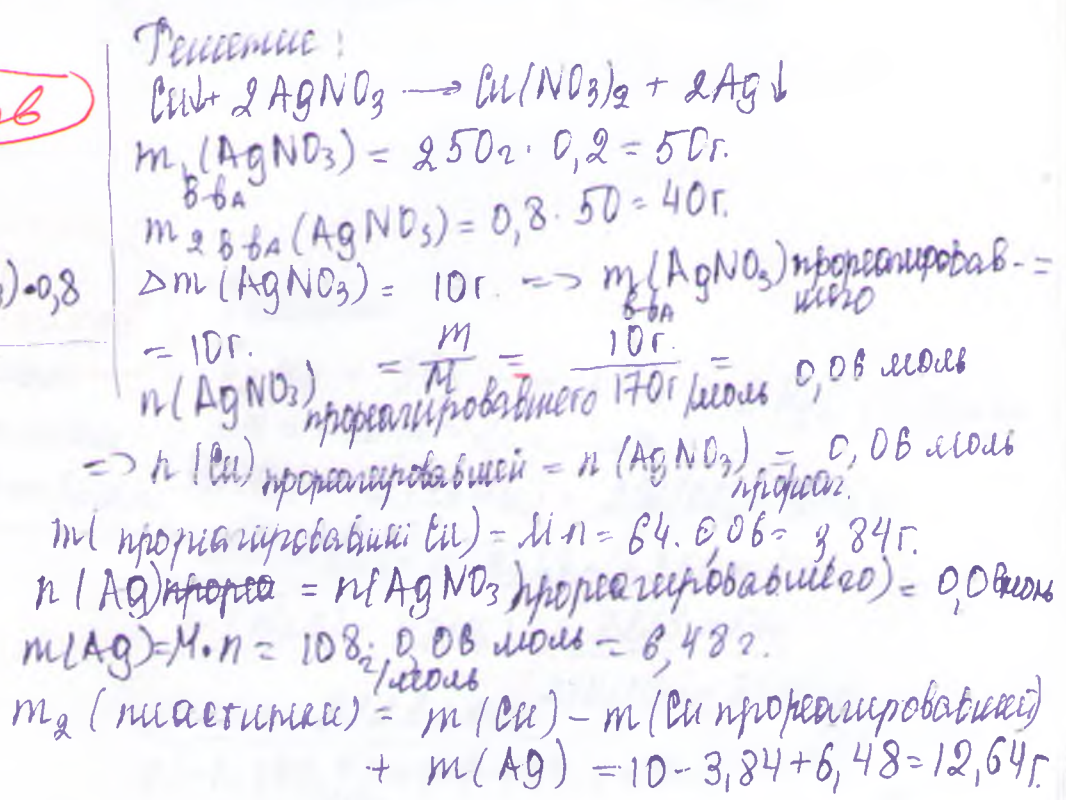 Решение:
Cu↓ + 2AgNO3 → Cu(NO3)2 + 2Ag↓
m1 в-ва (AgNO3) = 250г · 0,2 = 50г.
m2 в-ва (AgNO3) = 0,8 · 50 = 40г.
)·0,8
Δm(AgNO3) = 10г. => m в-ва (AgNO3) прореагировав- =
шего
= 10г.
n(AgNO3) прореагировавшего = m/M = 10г./170г/моль = 0,06 моль
=> n(Cu) прореагировавшей = n(AgNO3) прореаг. = 0,06 моль
m(прореагировавший Cu) = M·n = 64·0,06 = 3,84г.
n(Ag) = n(AgNO3 прореагировавшего) = 0,06моль
m(Ag) = M·n = 108 г/моль · 0,06 моль = 6,48г.
m2 (пластинки) = m(Cu) – m(Cu прореагировавшей)
+ m(Ag) = 10 – 3,84 + 6,48 = 12,64г.